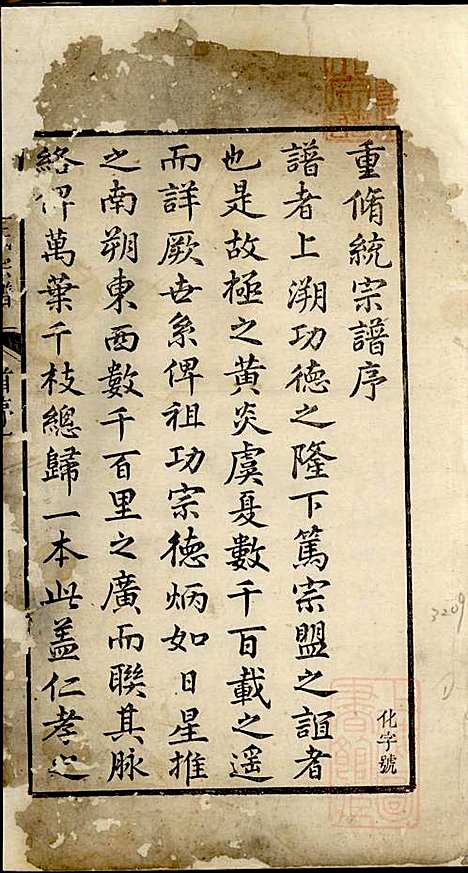 重脩統宗譜序
譜者上溯功德之隆下篤宗盟之誼者
也是故極之黃炎虞夏數千百載之遥
而詳厥世系俾祖功宗德炳如日星推
之南朔東西數千百里之廣而聯其脉
絡俾萬葉千枝總歸一本此盖仁孝之
化字號
3209